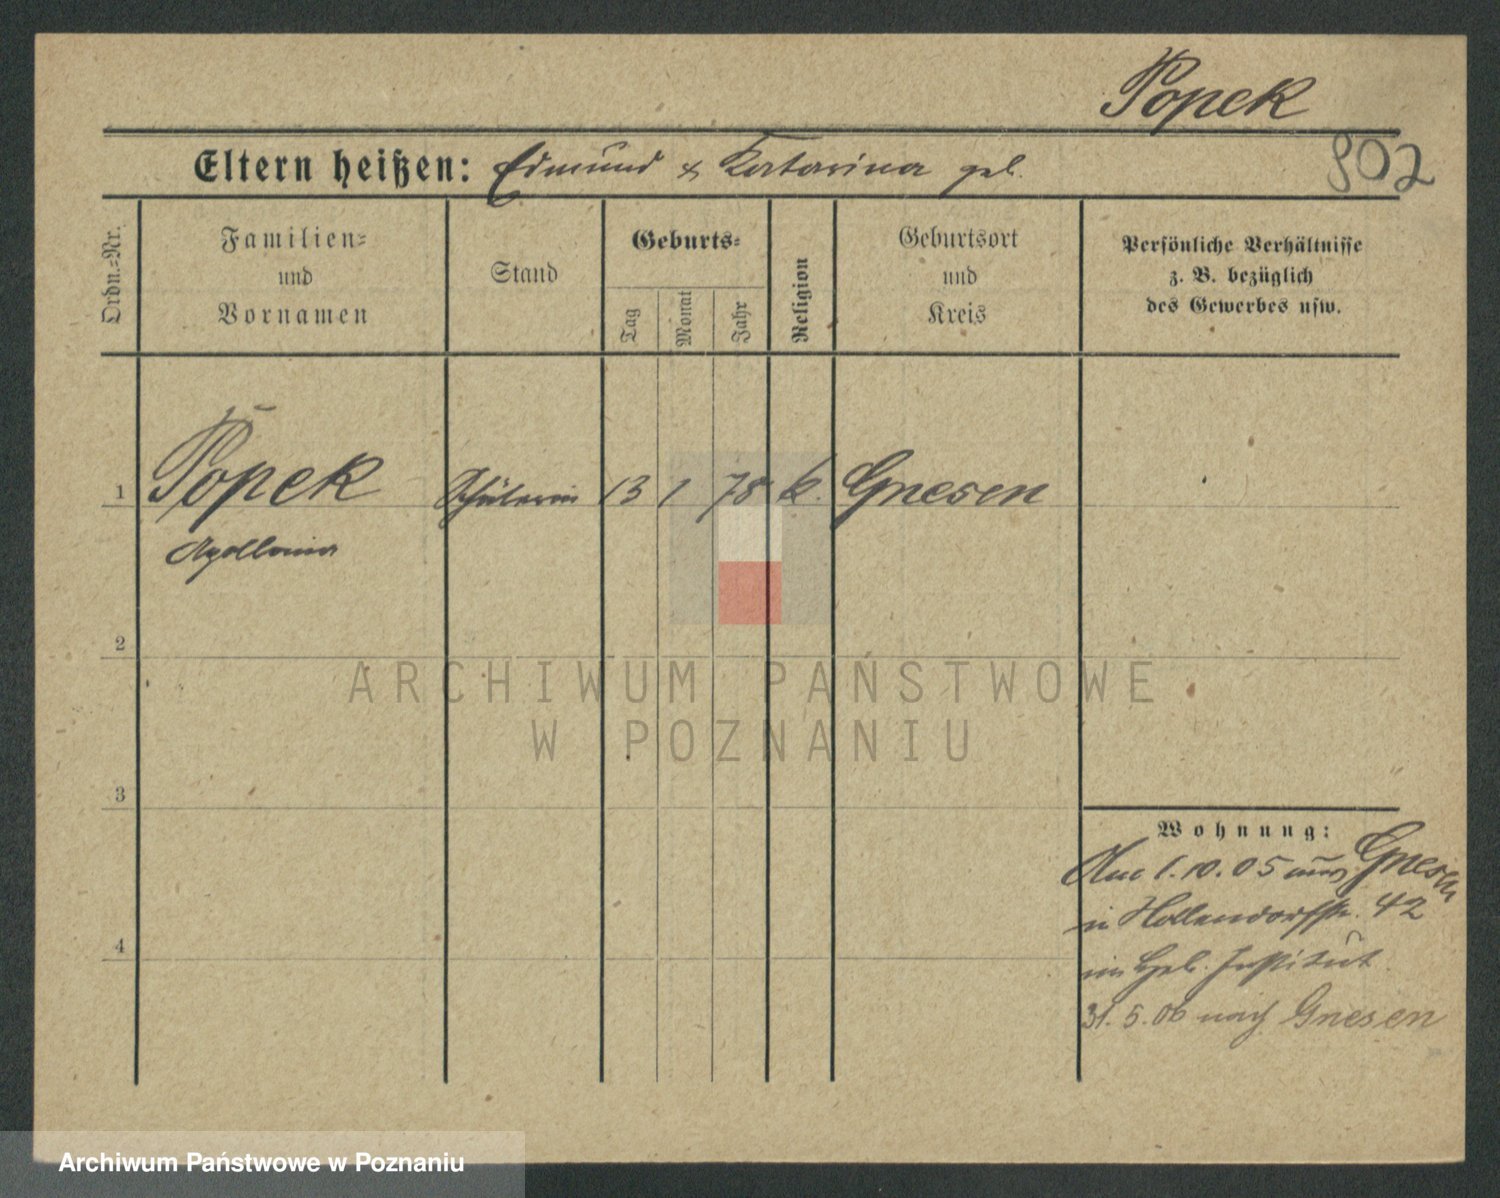 Popek
802
Eltern heißen: Edmund & Katarina geb.
Ordn.-Nr.
Familien-
und
Vornamen
Stand
Geburts-
Tag
Monat
Jahr
Religion
Geburtsort
und
Kreis
Persönliche Verhältnisse
z. B. bezüglich
des Gewerbes usw.
1 Popek Schülerin 13 1 78 k. Gnesen
Apollonia
2
ARCHIWUM PAŃSTWOWE
W POZNANIU
3
Wohnung:
Am 1.10.05 aus Gnesen
in Hollendorfstr. 42
im Institut
4
31.5.06 nach Gnesen
Archiwum Państwowe w Poznaniu